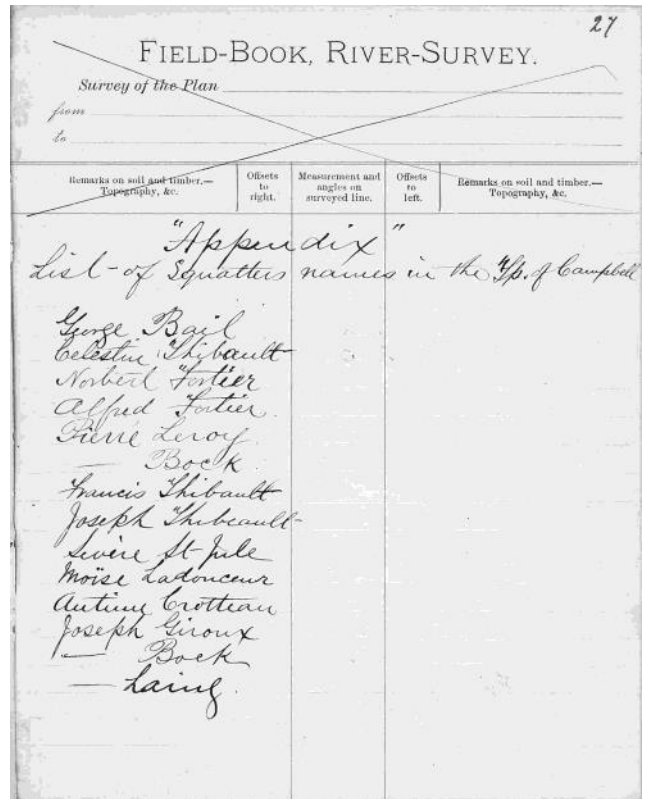 27
FIELD-BOOK, RIVER-SURVEY.
Survey of the Plan
from
to
Remarks on soil and timber.— Topography, &c.
Offsets to right.
Measurement and angles on surveyed line.
Offsets to left.
Remarks on soil and timber.— Topography, &c.
"Appendix"
List of Squatters names in the Tp. of Campbell
George Bail
Celestin Thibault
Norbert Fortier
Alfred Fortier
Pierre Leroy
— Bock
Francis Thibault
Joseph Thibeault
Sévère St-Jule
Moïse Ladouceur
Antime Crotteau
Joseph Giroux
— Bock
— Laing